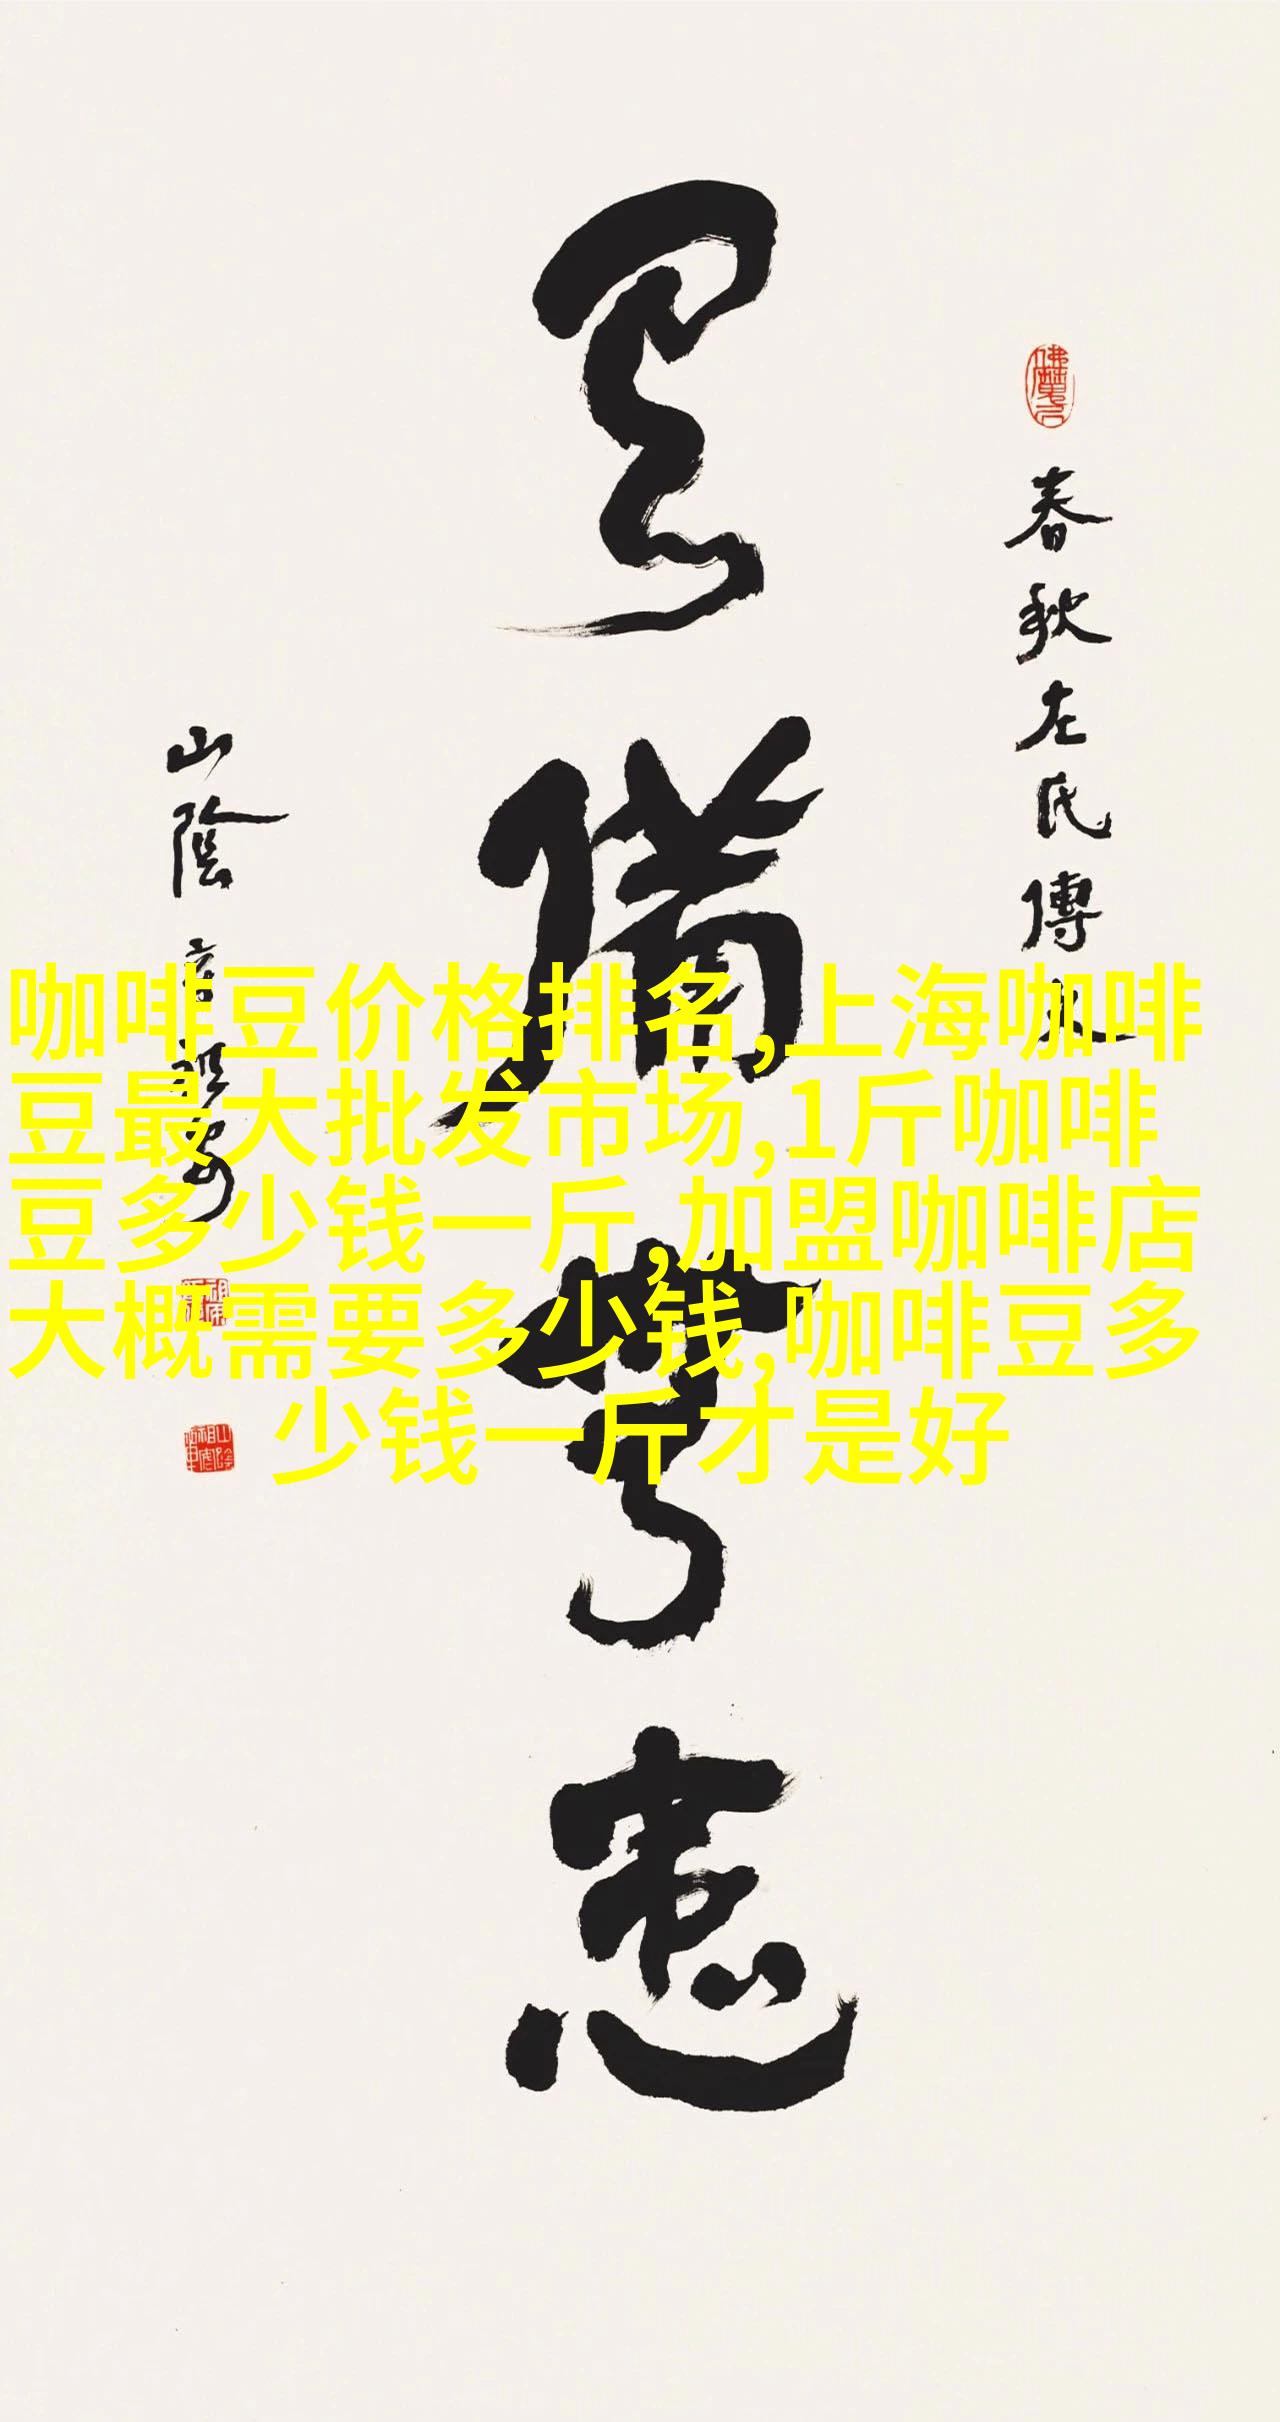 春秋左氏傳文
有備無患
山陰
咖啡豆价格排名,上海咖啡
豆最大批发市场,1斤咖啡
豆多少钱一斤,加盟咖啡店
大概需要多少钱,咖啡豆多
少钱一斤才是好